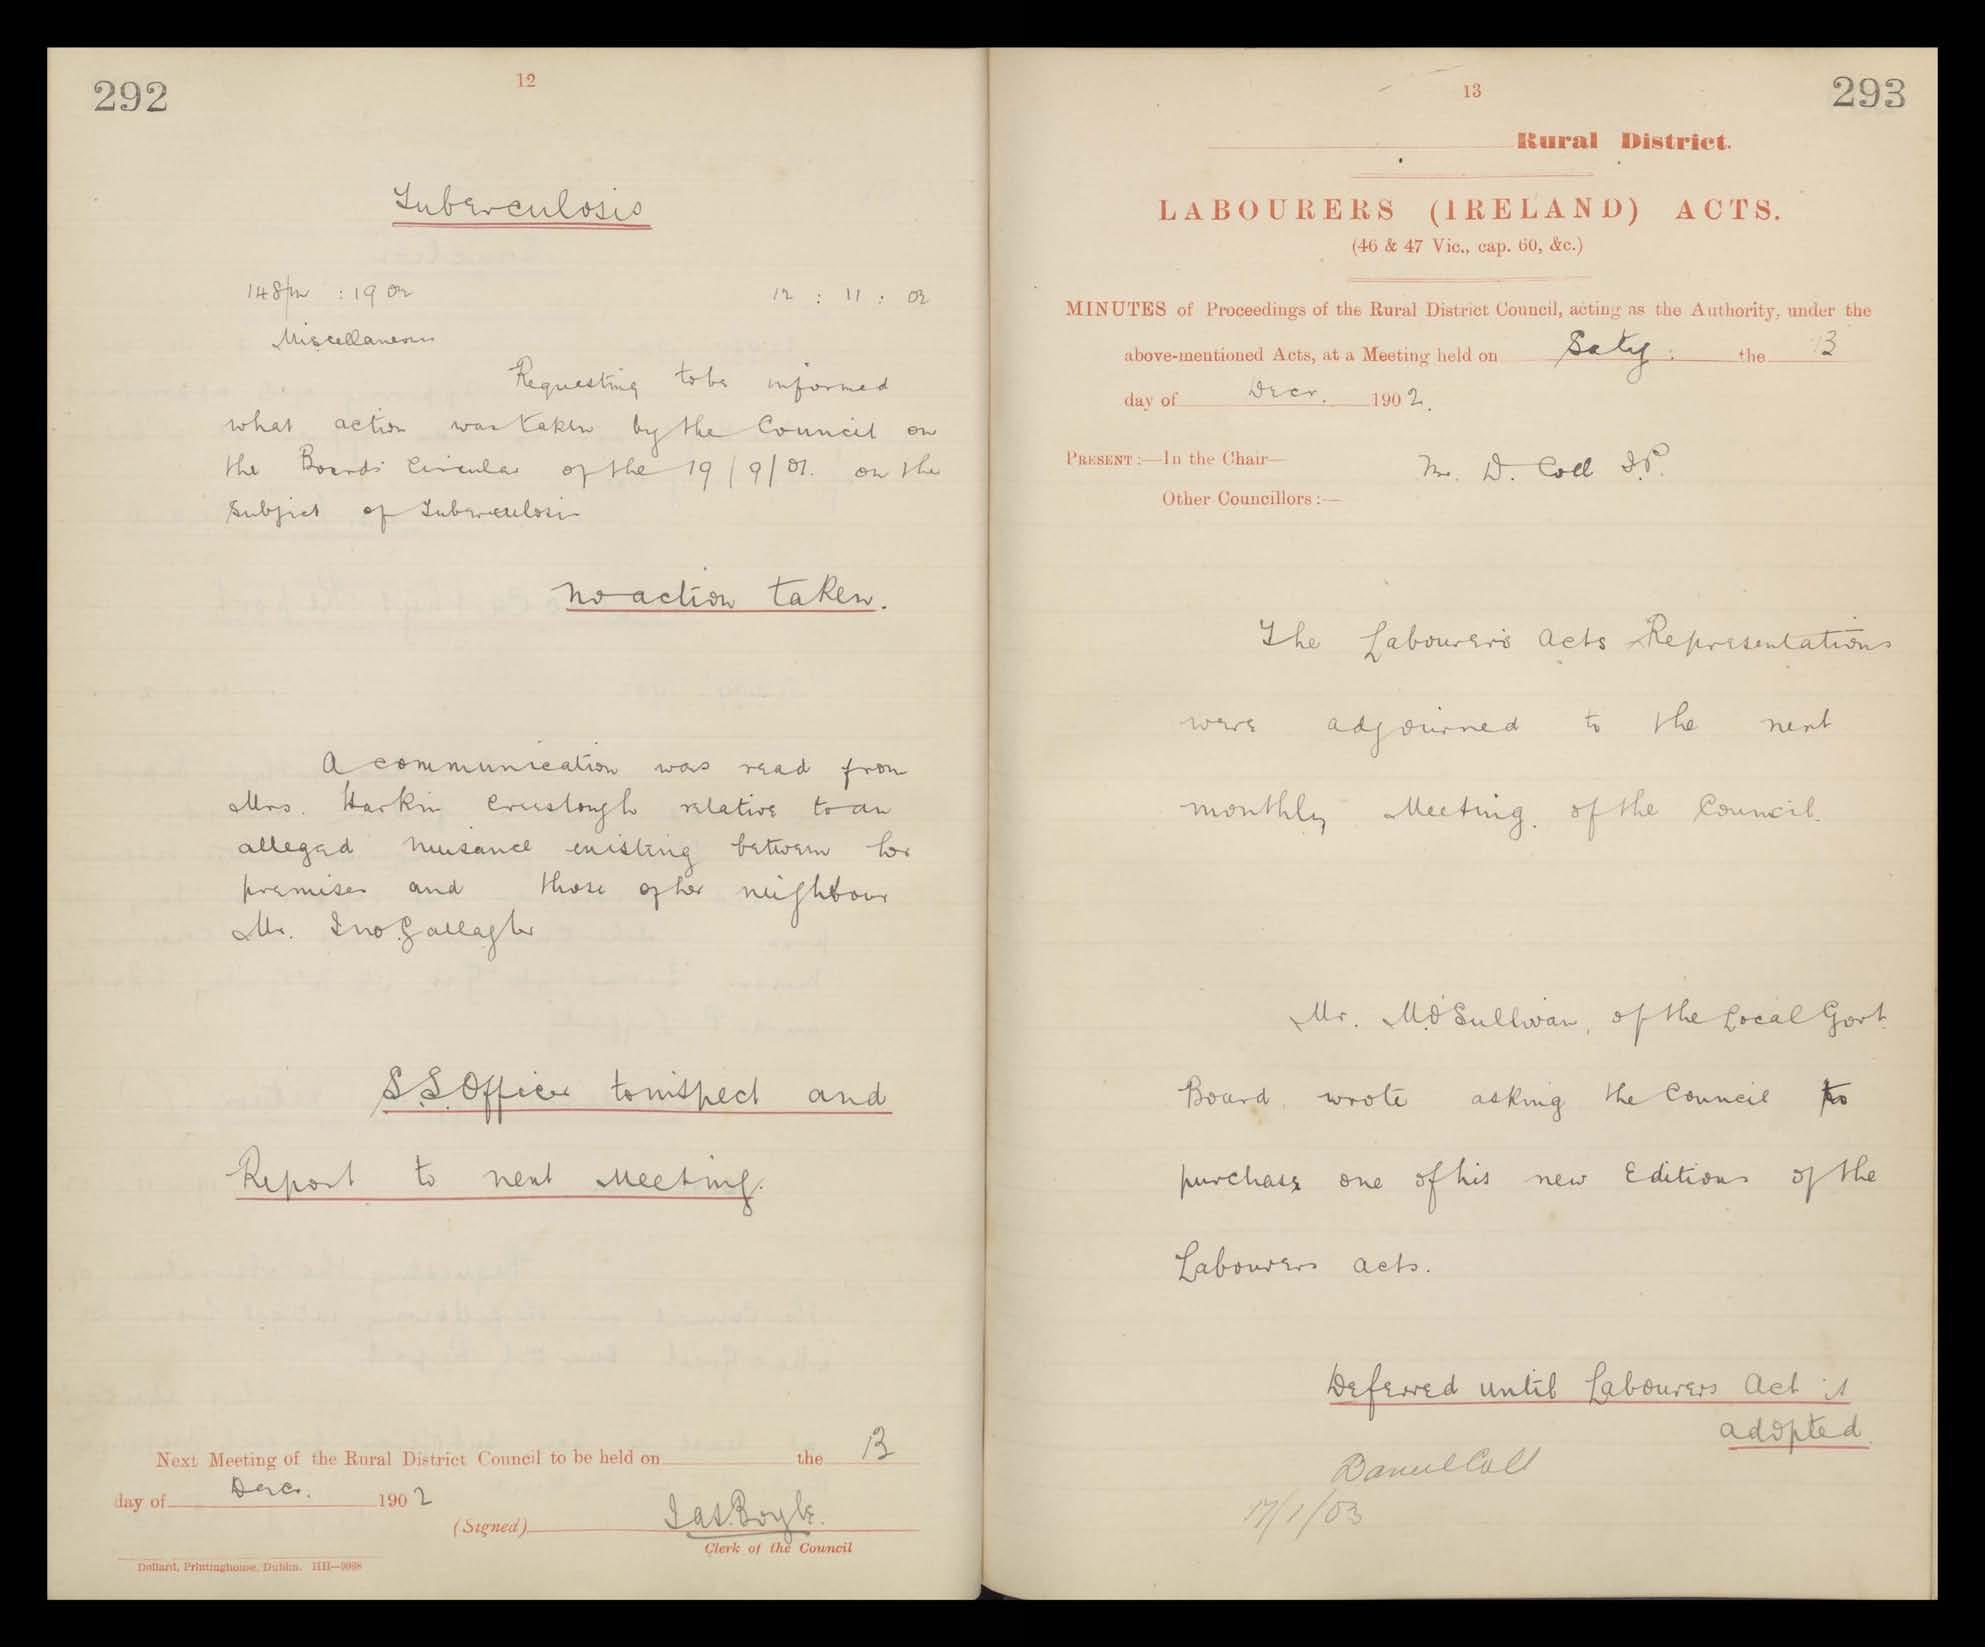 292
12
Tuberculosis
: 1902 12 : 11 : 02
Miscellaneous
Requesting to be informed
what action was taken by the Council on
the Boards Circular of the 19/9/01. on the
subject of Tuberculosis
No action taken.
A communication was read from
Mrs. Harkin Creeslough relative to an
alleged nuisance existing between her
premises and those of her neighbour
Mr. Jno Gallagher
S.S. Officer to inspect and
Report to next Meeting.
Next Meeting of the Rural District Council to be held on the 13
day of Decr. 1902
(Signed) Jas. Boyle.
Clerk of the Council
Dollard, Printinghouse, Dublin. HH—9098
293
13
Rural District.
LABOURERS (IRELAND) ACTS.
(46 & 47 Vic., cap. 60, &c.)
MINUTES of Proceedings of the Rural District Council, acting as the Authority, under the
above-mentioned Acts, at a Meeting held on Saty: the 13
day of Decr. 1902.
PRESENT:—In the Chair— Mr. D. Coll J.P.
Other Councillors:—
The Labourers Acts Representations
were adjourned to the next
monthly Meeting of the Council.
Mr. M. O'Sullivan, of the Local Govt.
Board wrote asking the Council to
purchase one of his new Editions of the
Labourers acts.
Deferred until Labourers Act is
adopted.
Daniel Coll
17/1/03